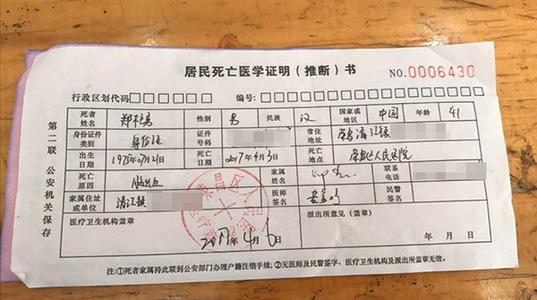 居民死亡医学证明（推断）书
NO.0006430
行政区划代码 编号：
第二联 公安机关保存
死者姓名 郑 性别 男 民族 汉 国家或地区 中国 年龄 41
身份证件类别 身份证 证件号码 常住地址 清江镇
出生日期 死亡日期 2017年4月3日 死亡地点 人民医院
死亡原因 脑出血 家属签名 联系电话
家属住址或单位 清江镇 医师签名 民警签名
医疗卫生机构盖章 派出所意见（盖章）
荣昌区人
2017年4月6日 年 月 日
注：①死者家属持此联到公安部门办理户籍注销手续；②无医师及民警签字、医疗卫生机构及派出所盖章无效。